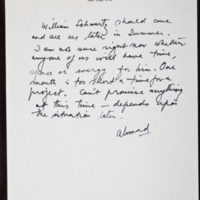 William Schwartz should come
and see us later in Summer.
I am not sure right now whether
anyone of us will have time,
space or energy for him. One
month is too short a time for a
project. Can't promise anything
at this time – depends upon
the situation later.